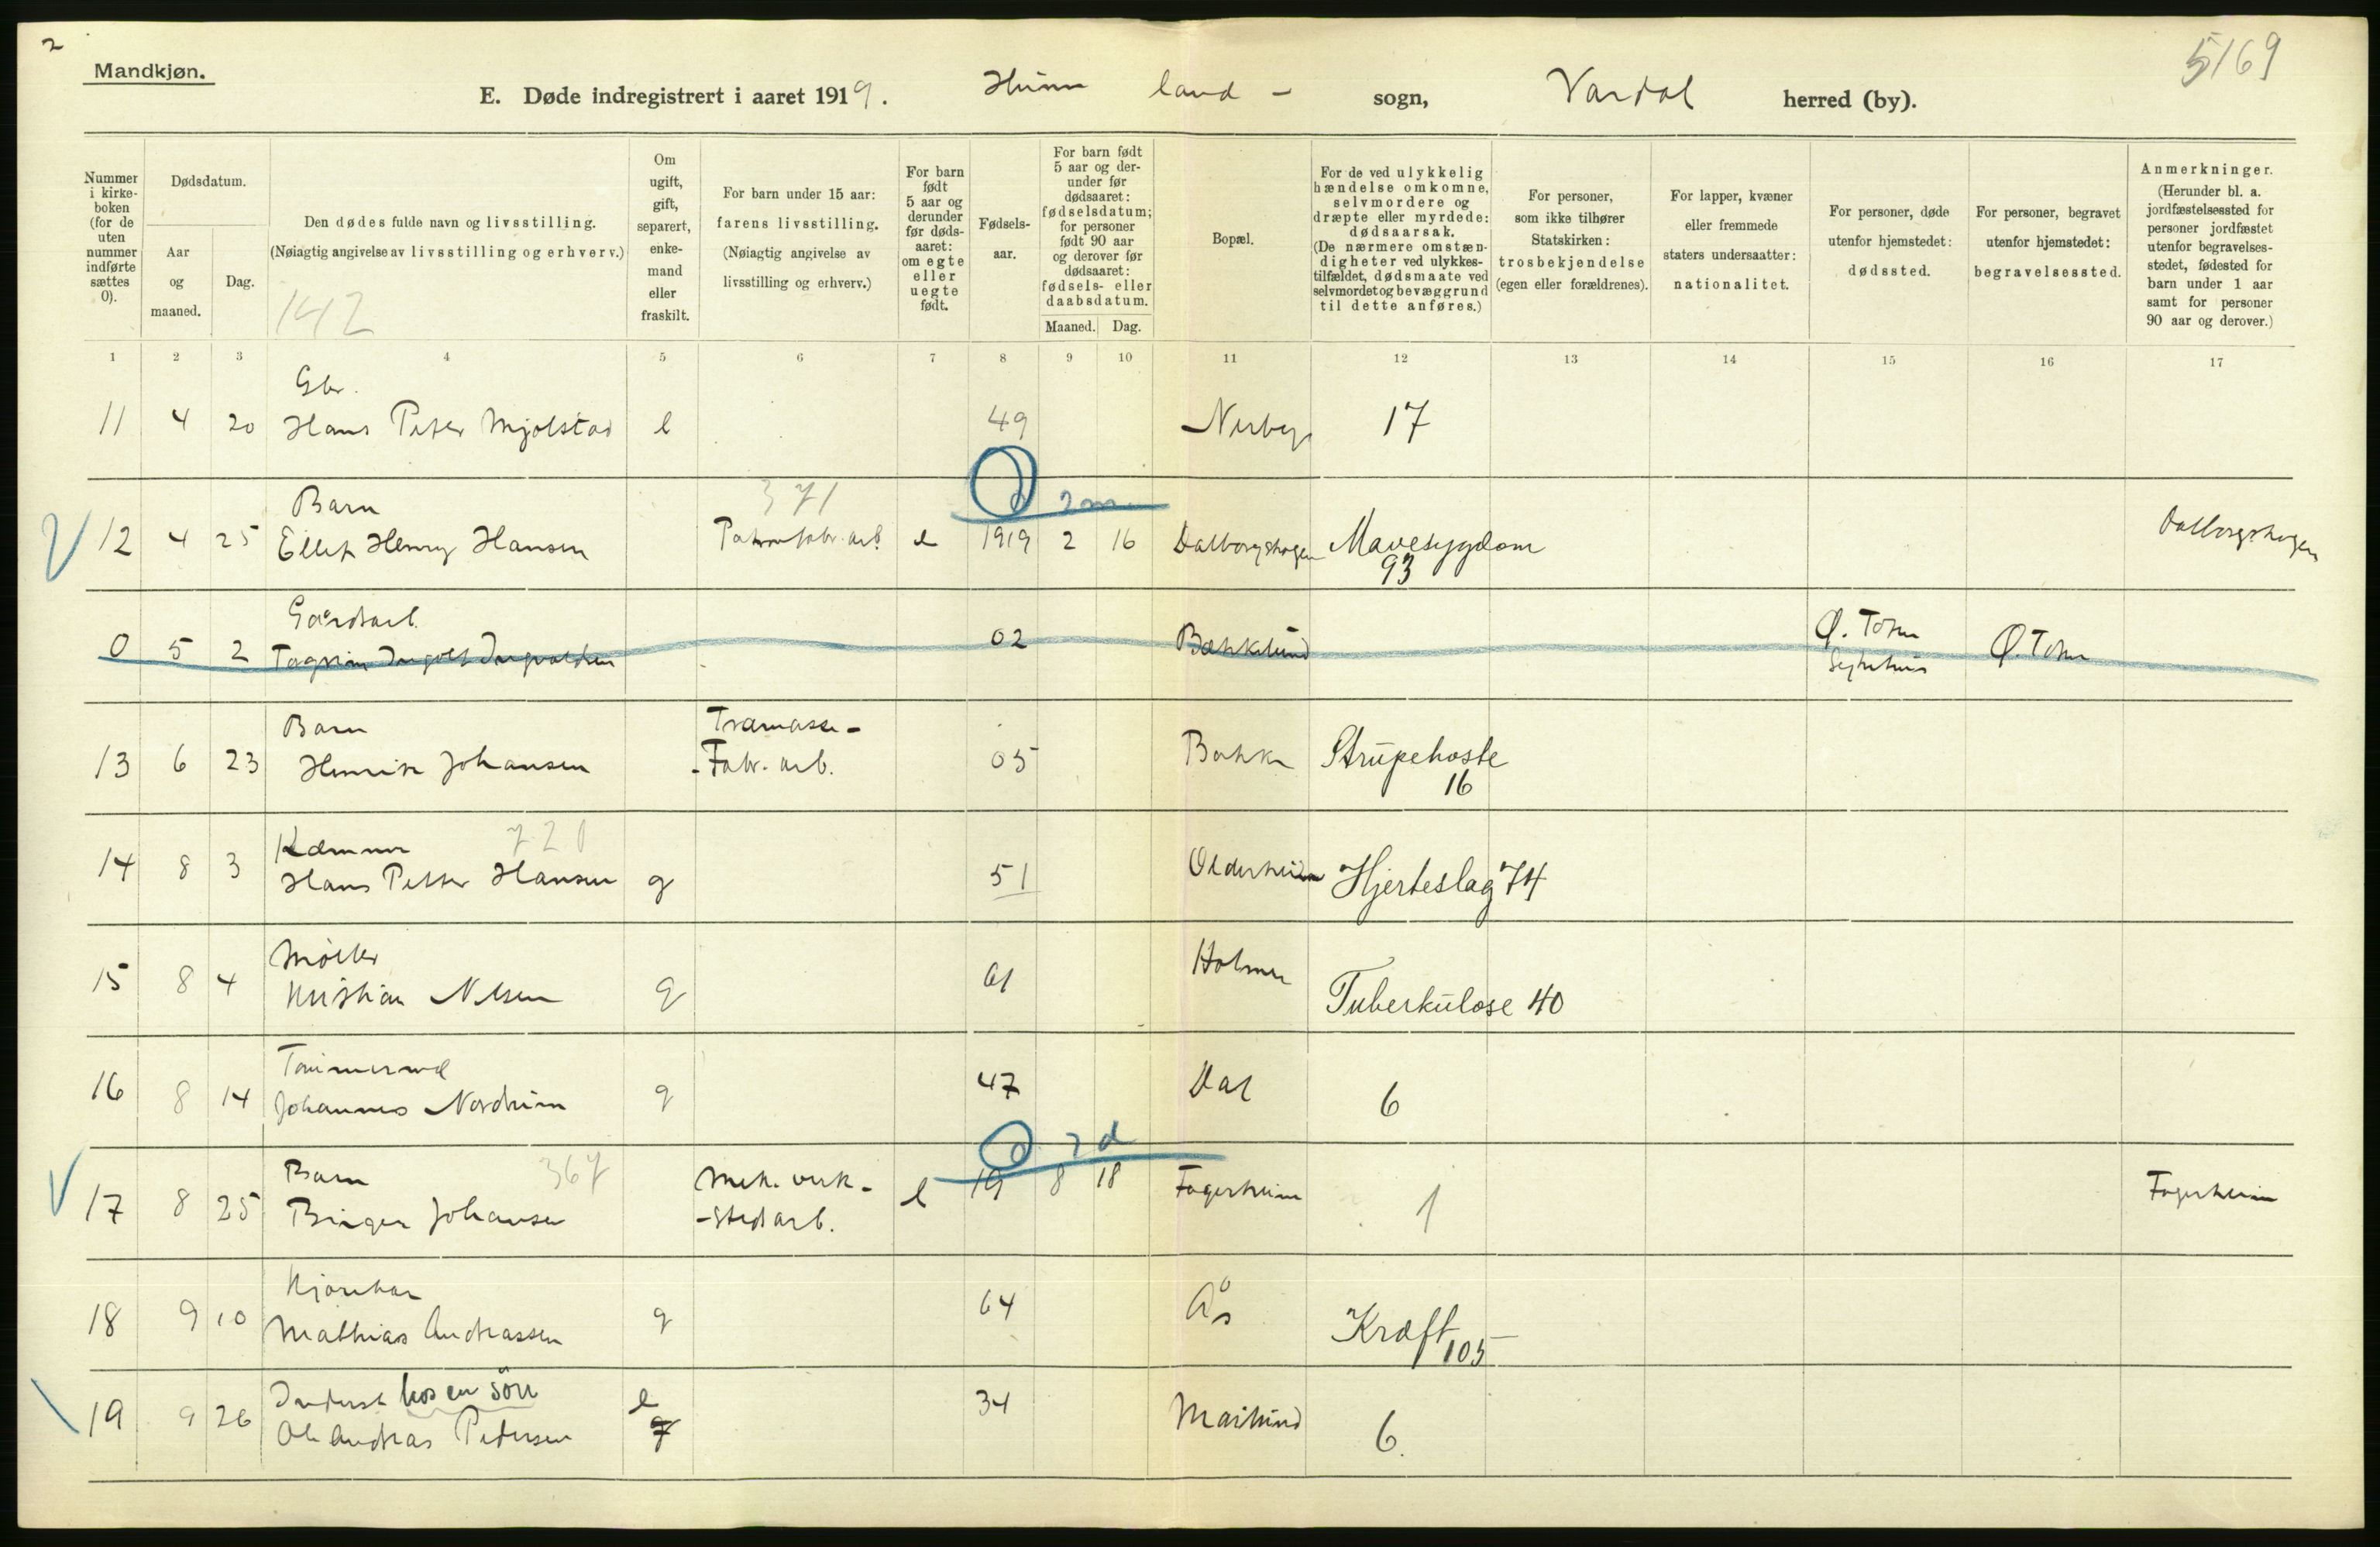 2
Mandkjøn.
5169
E. Døde indregistrert i aaret 1919. Hunn land - sogn, Vardal herred (by).
Nummer i kirke-boken (for de uten nummer indførte sættes 0).
Dødsdatum.
Aar og maaned.
Dag.
Den dødes fulde navn og livsstilling.
(Nøiagtig angivelse av livsstilling og erhverv.)
142
Om ugift, gift, separert, enke-mand eller fraskilt.
For barn under 15 aar: farens livsstilling.
(Nøiagtig angivelse av livsstilling og erhverv.)
For barn født 5 aar og derunder før døds-aaret: om egte eller uegte født.
Fødsels-aar.
For barn født 5 aar og der-under før dødsaaret: fødselsdatum; for personer født 90 aar og derover før dødsaaret: fødsels- eller daabsdatum.
Maaned. Dag.
Bopæl.
For de ved ulykkelig hændelse omkomne, selvmordere og dræpte eller myrdede: dødsaarsak.
(De nærmere omstæn-digheter ved ulykkes-tilfældet, dødsmaate ved selvmordet og bevæggrund til dette anføres.)
For personer, som ikke tilhører Statskirken: trosbekjendelse (egen eller forældrenes).
For lapper, kvæner eller fremmede staters undersaatter: nationalitet.
For personer, døde utenfor hjemstedet: dødssted.
For personer, begravet utenfor hjemstedet: begravelsessted.
Anmerkninger.
(Herunder bl. a. jordfæstelsessted for personer jordfæstet utenfor begravelses-stedet, fødested for barn under 1 aar samt for personer 90 aar og derover.)
1 2 3 4 5 6 7 8 9 10 11 12 13 14 15 16 17
Gbr.
11 4 20 Hans Peter Mjølstad e 49 Nerby 17
Barn 371 2 m
12 4 25 Ellef Henry Hansen fabr. arb. e 1919 2 16 Dalborgshagen Mavesygdom Dalborgshagen
93
Gaardsarb. Ø. Toten
0 5 2 Ingolf Ingvaldsen 02 Bakkelund Sykehus Ø. Toten
Barn Træmasse-
13 6 23 Henrik Johansen -Fabr. arb. 05 Bakke Strupehoste
16
720
14 8 3 Hans Petter Hansen g 51 Olderheim Hjerteslag 74
Møller
15 8 4 Kristian Nilsen g 61 Holmen Tuberkulose 40
Tømmerm
16 8 14 Johannes Nordheim g 47 Dal 6
Barn 367 Mek. verk- 7 d
17 8 25 Birger Johansen -stedarb. e 19 8 18 Fagerheim 1 Fagerheim
18 9 10 Mathias Andreassen g 64 Ås Kræft 105
Inderst hos en søn e
19 9 26 Ole Andreas Pedersen g 34 Marilund 6